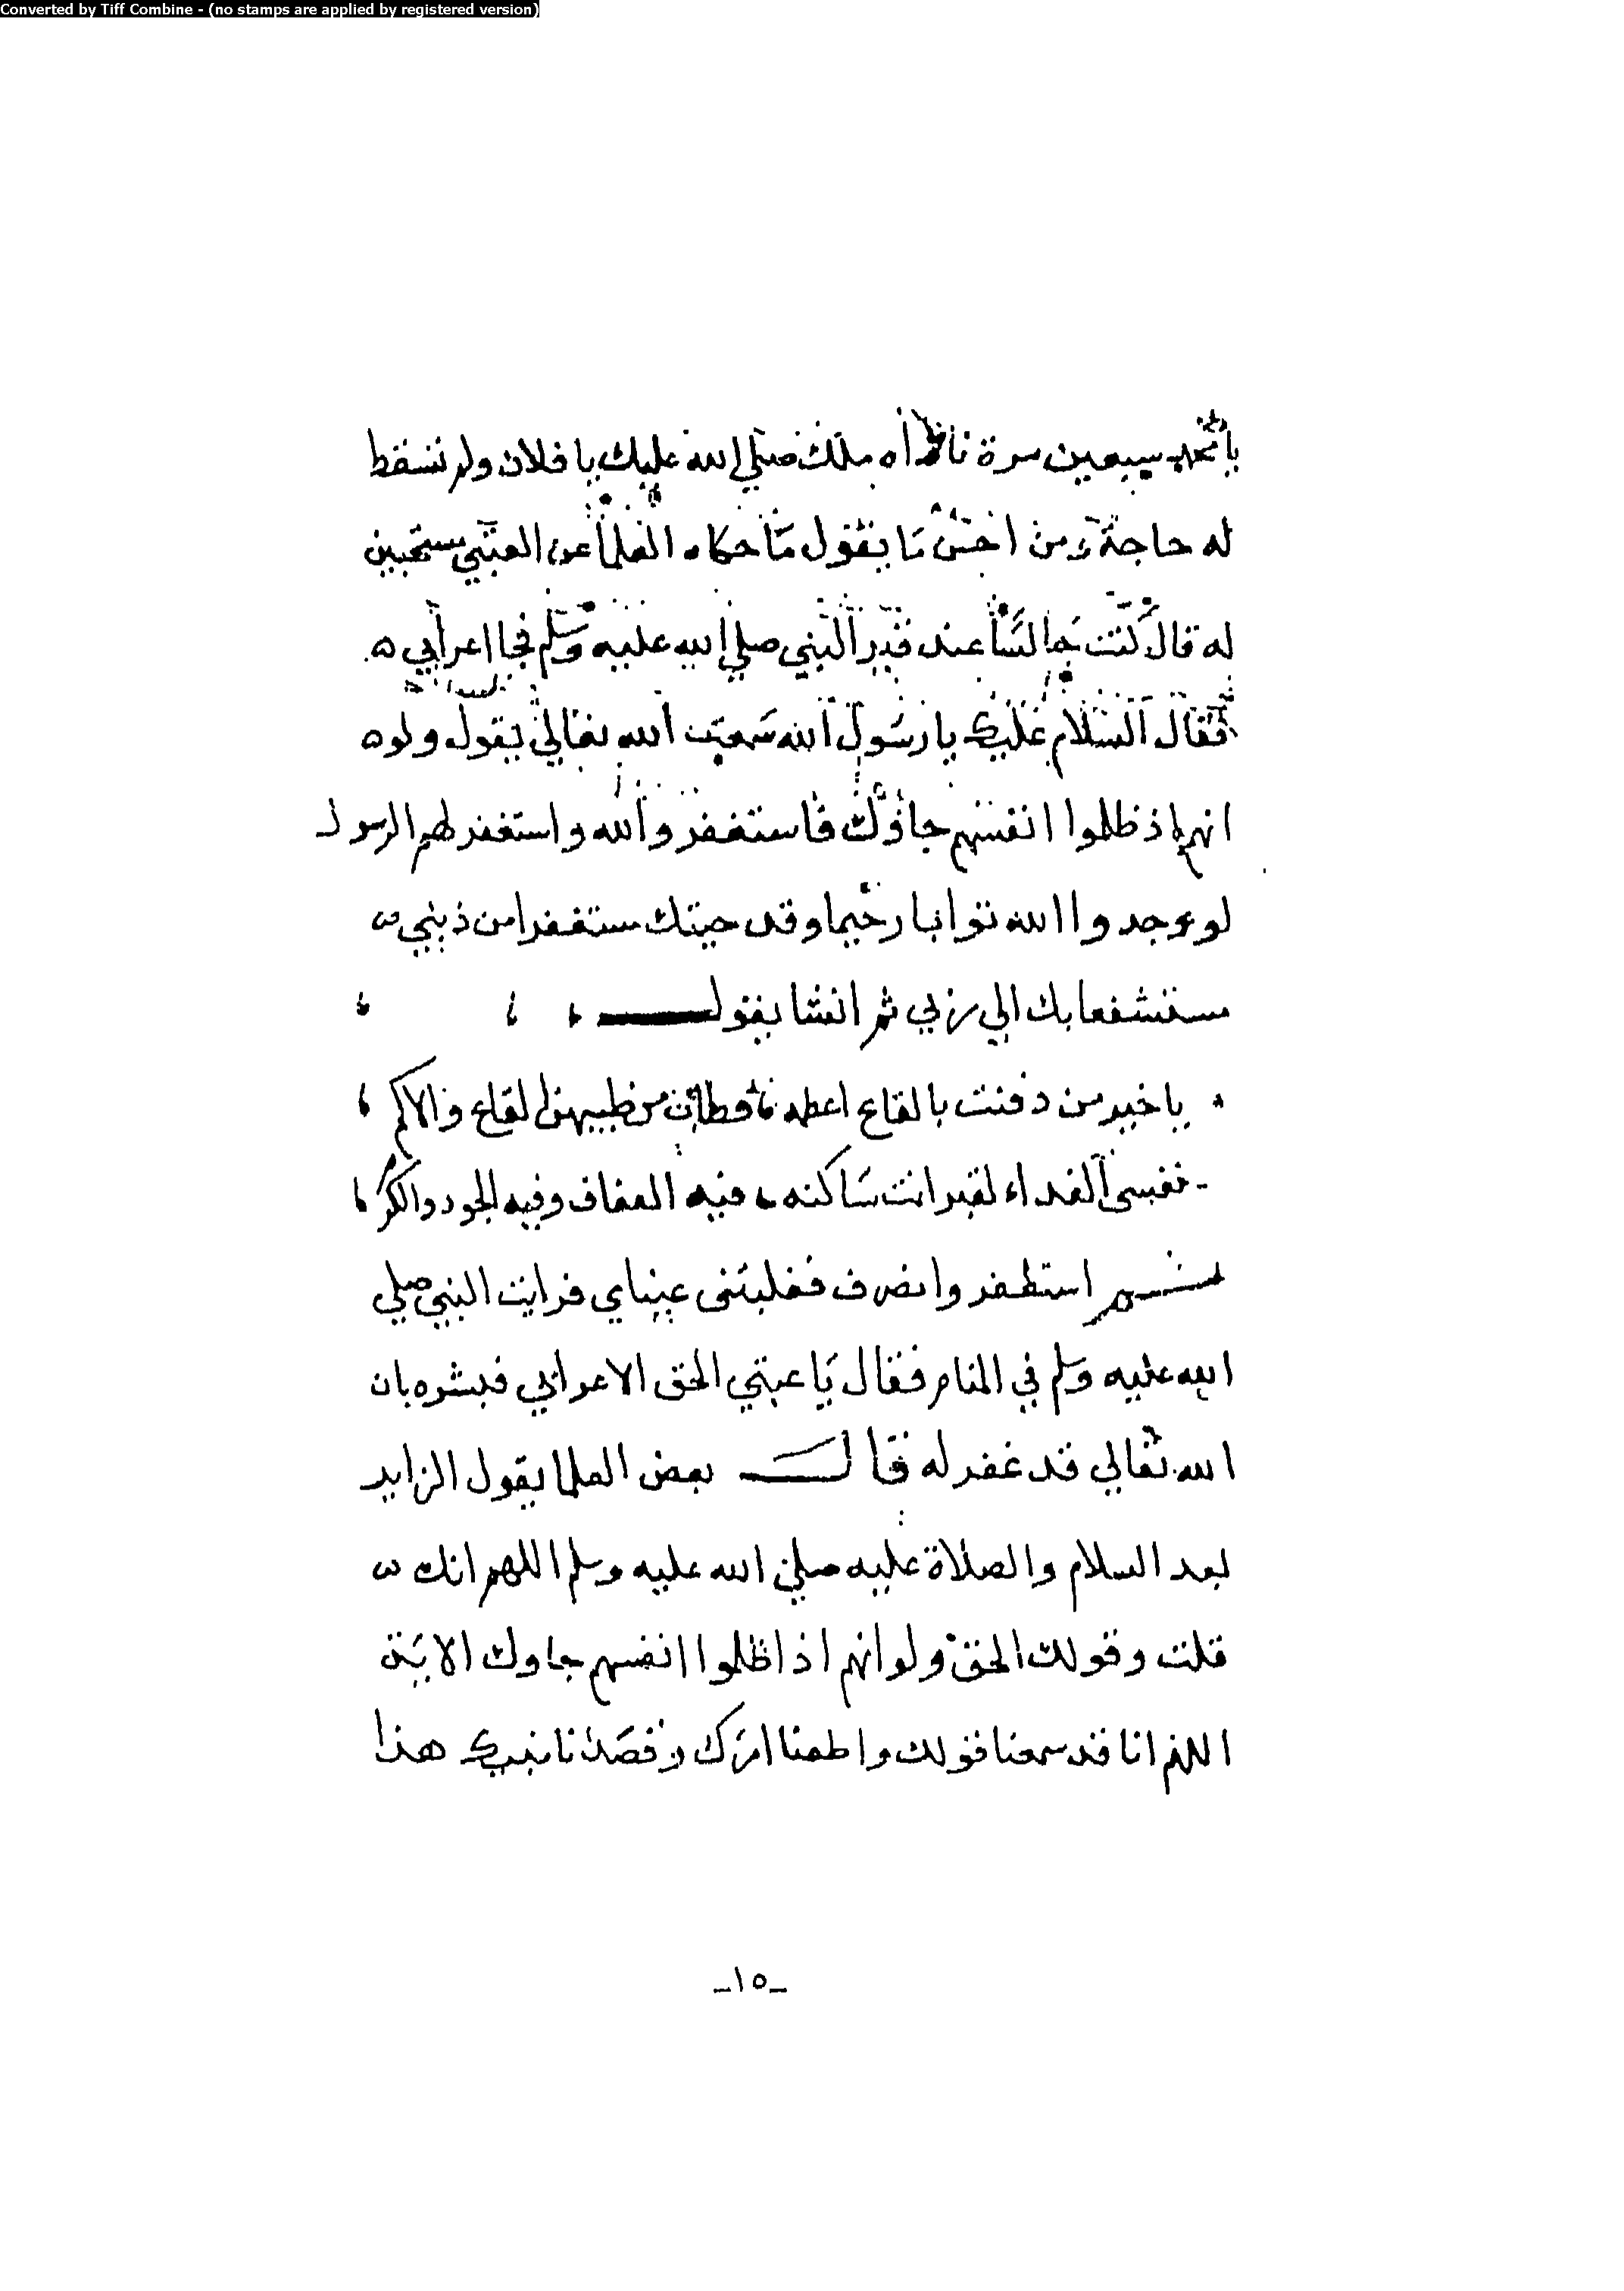 Converted by Tiff Combine - (no stamps are applied by registered version)
يا محمد سبعين مرة ناداه ملك صلي الله عليك يا فلان ولم تسقط
له حاجة ومن احسن ما يقول ما حكاه العلما عن العتبي مستحبين
له قال كنت جالسا عند قبر النبي صلي الله عليه وسلم فجا اعرابي
فقال السلام عليك يا رسول الله سمعت الله تعالي يقول ولو
انهم اذ ظلموا انفسهم جاؤك فاستغفروا لله واستغفر لهم الرسول
لوجدوا الله توابا رحيما وقد جيتك مستغفرا من ذنبي
مستشفعا بك الي ربي ثم انشا يقول
يا خير من دفنت بالقاع اعظمه فطاب من طيبهن القاع والاكم
نفسي الفداء لقبر انت ساكنه فيه العفاف وفيه الجود والكرم
ثم استغفر وانصرف فغلبتني عيناي فرايت النبي صلي
الله عليه وسلم في المنام فقال يا عتبي الحق الاعرابي فبشره بان
الله تعالي قد غفر له قال بعض العلما يقول الزاير
بعد السلام والصلاة عليه صلي الله عليه وسلم اللهم انك
قلت وقولك الحق ولو انهم اذ ظلموا انفسهم جاوك الاية
اللهم انا قد سمعنا قولك واطعنا امرك وقصدنا نبيك هذا
-١٥-